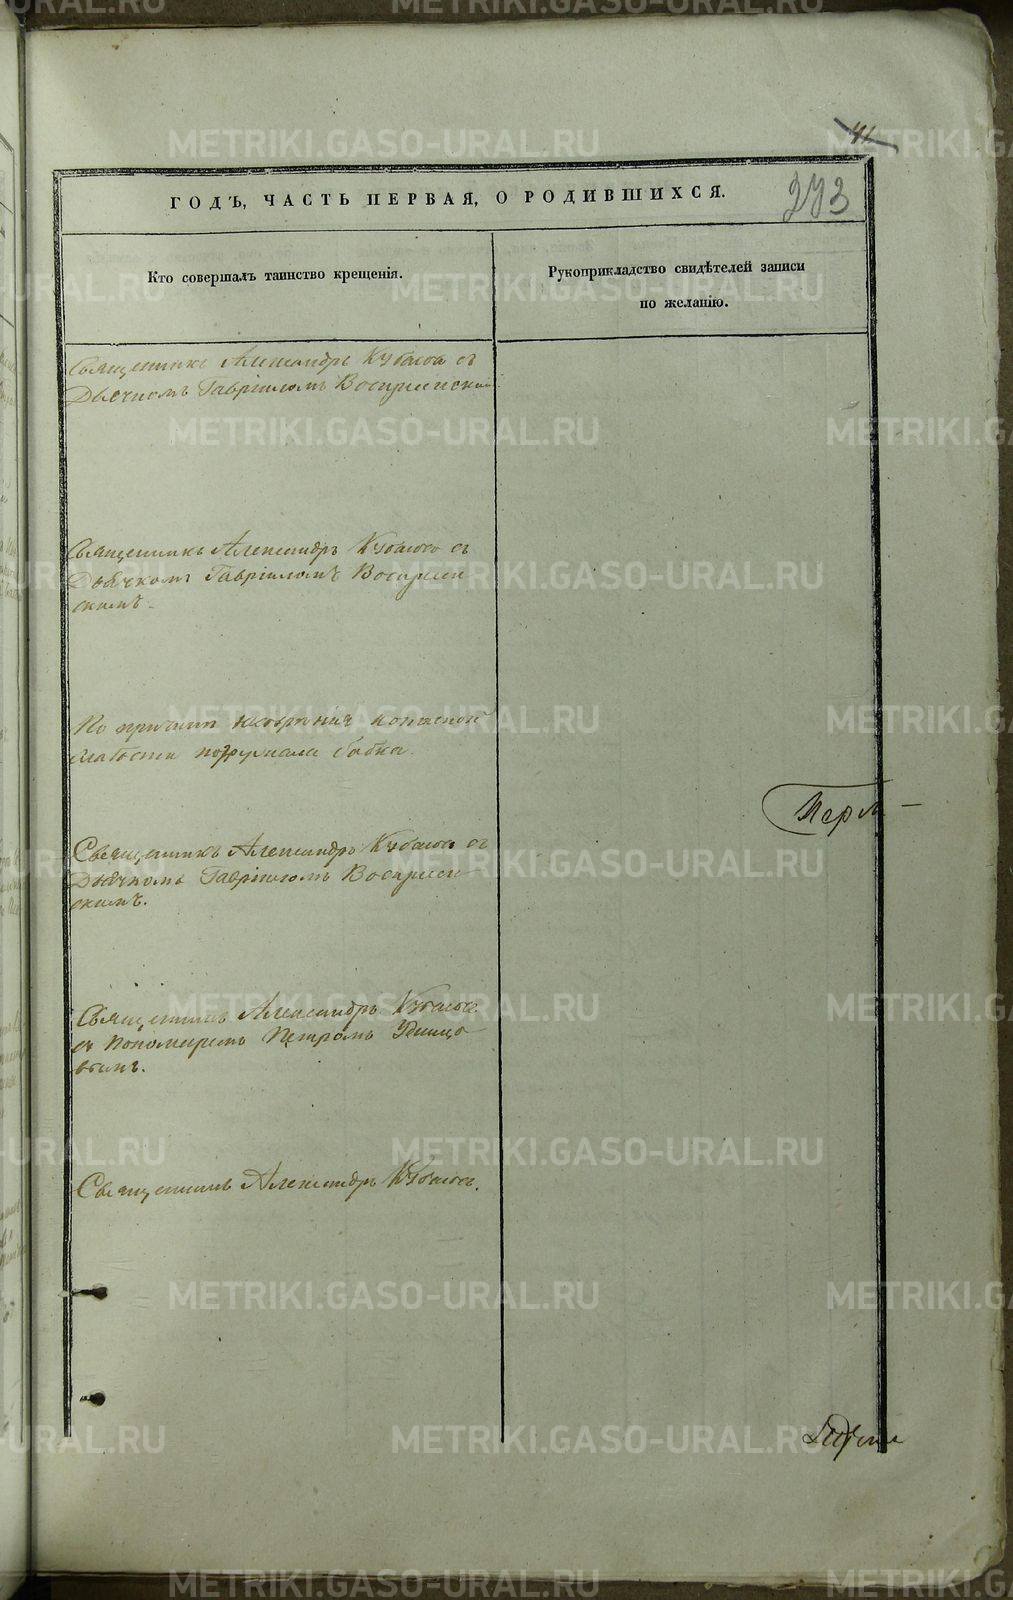 273
ГОДЪ, ЧАСТЬ ПЕРВАЯ, О РОДИВШИХСЯ.
Кто совершалъ таинство крещенія.
Рукоприкладство свидѣтелей записи
по желанію.
Священникъ Александръ Кубасов съ
Дьячкомъ Гавріиломъ Воскресенским
Священникъ Александръ Кубасовъ съ
Дьячкомъ Гавріиломъ Воскресен
скимъ.
По причинѣ
слабости погружала бабка.
Священникъ Александръ Кубасовъ съ
Дьячкомъ Гавріиломъ Воскресен
скимъ.
Перм
Священникъ Александръ Кубасовъ
съ Пономаремъ Петромъ
вымъ.
Священникъ Александръ Кубасовъ.
METRIKI.GASO-URAL.RU